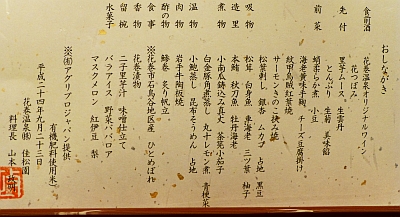 おしながき
食前酒 花巻温泉オリジナルワイン
花つぼみ
先付 黒芋ムース 生雲丹
とんぶり 生菊 美味餡
前菜 蛸柔らか煮 小豆
海老黄味手鞠 チーズ豆腐掛け
紋甲烏賊紅葉焼
サーモンきのこ挟み焼
松葉刺し 銀杏 ムカゴ 占地 黒豆
吸物 松茸 白身魚 車海老 三ツ葉 柚子
造里 本鮪 秋刀魚 牡丹海老
煮物 小南瓜鋳込み真丈 茶筅小茄子
白金豚角煮蒸し 丸十レモン煮 青梗菜
温物 小鮑蒸し 昆布そうめん 占地
肉物 岩手牛陶板焼
酢の物 鰺巻 炙り帆立
食事 花巻市石鳥谷地区産 ひとめぼれ
香の物 花巻漬物
留椀 二子里芋汁 味噌仕立て
水菓子 バラアイス 野菜ババロア
マスクメロン 紅伊豆 梨
※㈲アクリプロジャパン提供
有機肥料使用米
平成二十四年九月二十三日
花巻温泉㈱ 佳松園
料理長 山本